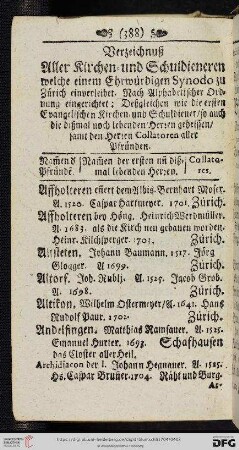 (388)
Verzeichnuß
Aller Kirchen- und Schuldieneren
welche einem Ehrwürdigen Synodo zu
Zürich einverleibet. Nach Alphabetischer Ord-
nung eingerichtet; Deßgleichen wie die ersten
Evangelischen Kirchen- und Schuldiener/ so auch
die dißmal noch lebenden Herren geheissen/
samt den Herren Collatoren aller
Pfründen.
Namen d. Namen der ersten uñ diß- Collato-
Pfründe. mal lebenden Herren. res.
Affholteren enert dem Albis. Bernhart Moser.
A. 1520. Caspar Hartmeyer. 1701. Zürich.
Affholteren bey Höng. Heinrich Werdmüller.
A. 1683. als die Kirch neu gebauen worden.
Heinr. Kilchsperger. 1703. Zürich.
Altsteten. Johann Baumann. 1517. Jörg
Glogger. A 1699. Zürich.
Altorf. Joh. A. 1525. Jacob Grob.
A. 1698. Zürich.
Altikon. Wilhelm Ostermeyer/ A. 1641. Hans
Rudolf Paur. 1702. Zürich.
Andelfingen. Matthias Ramsauer. A. 1525.
Emanuel Hurter. 1693. Schafhausen
das Closter aller Heil.
Archidiacon der I. Johann Hegnauer. A. 1525.
Hs. Caspar Brunner. 1704. Räht und Burg-